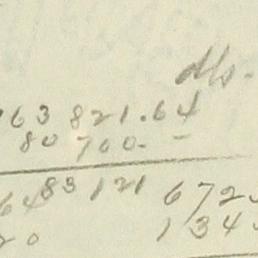 dls.
763 821.64
80 700.-
6483 121 672
20 134